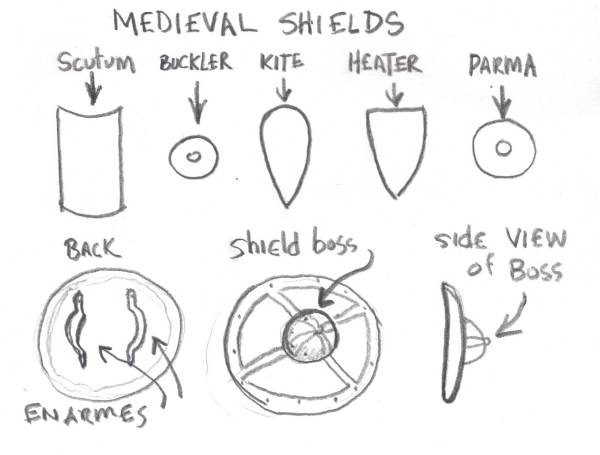 MEDIEVAL SHIELDS
Scutum BUCKLER KITE HEATER PARMA
BACK
Shield boss
Side VIEW
of Boss
ENARMES